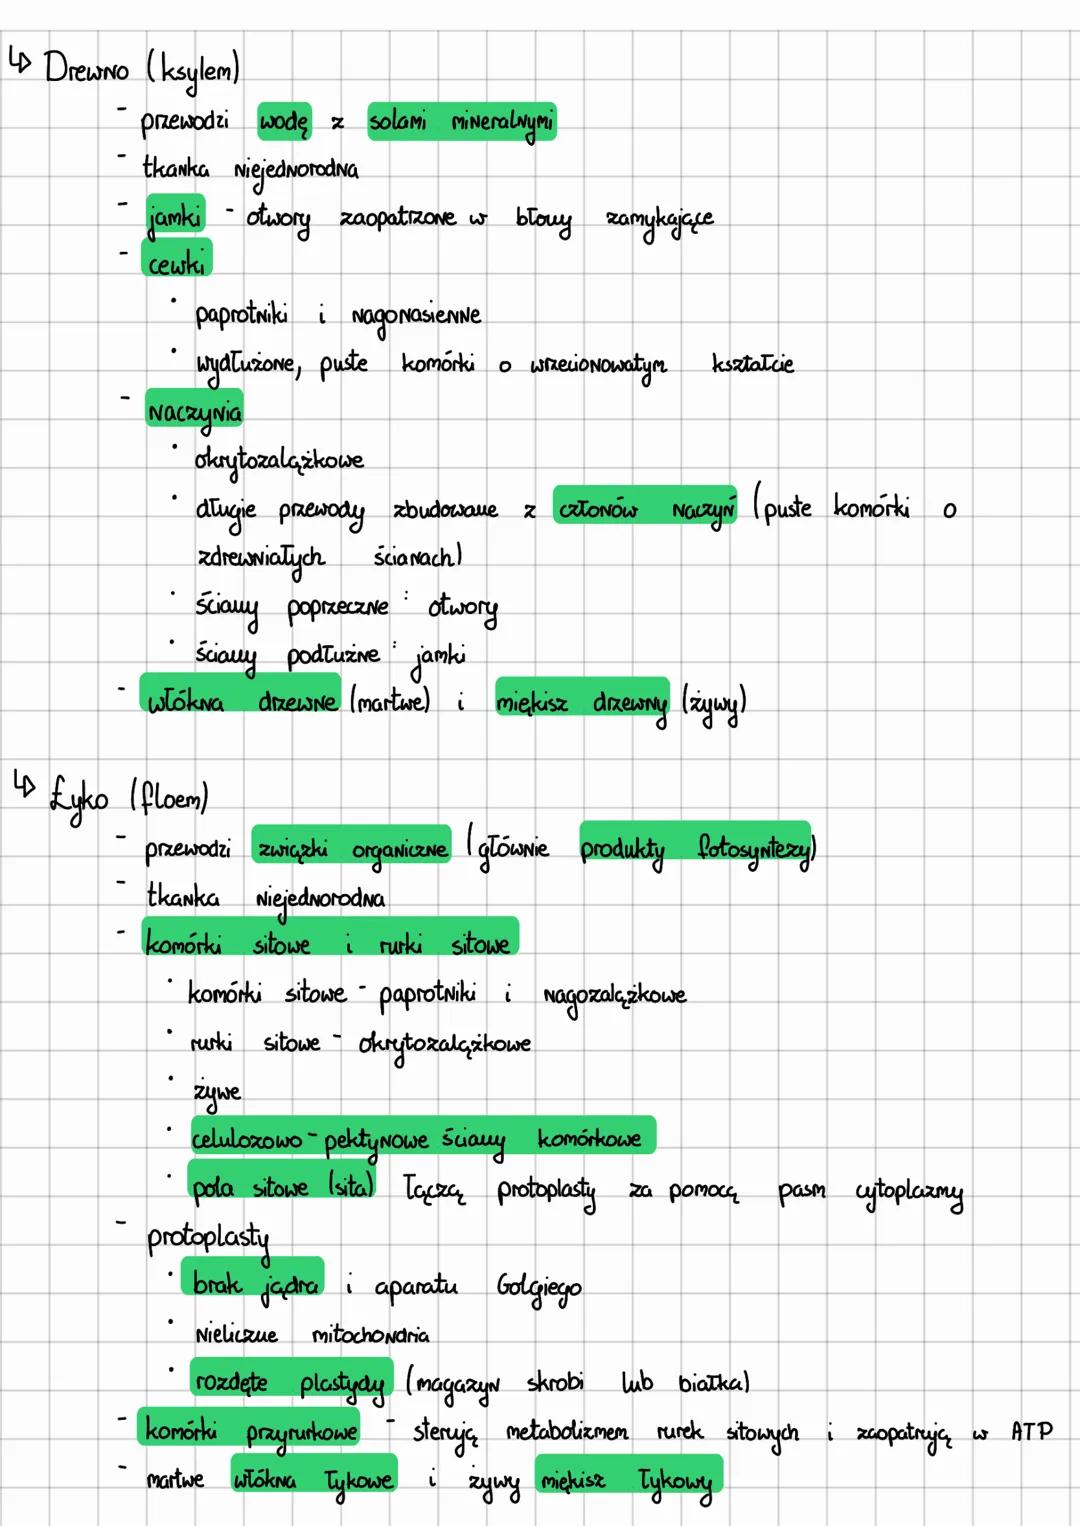 ↳ Drewno (ksylem)
- przewodzi wodę z solami mineralnymi
- tkanka niejednorodna
- jamki - otwory zaopatrzone w błony zamykające
- cewki
• paprotniki i nagonasienne
• wydłużone, puste komórki o wrzecionowatym kształcie
- naczynia
• okrytozalążkowe
• długie przewody zbudowane z członów naczyń (puste komórki o
zdrewniałych ścianach)
• ściany poprzeczne : otwory
• ściany podłużne : jamki
- włókna drzewne (martwe) i miękisz drzewny (żywy)
↳ Łyko (floem)
- przewodzi związki organiczne (głównie produkty fotosyntezy)
- tkanka niejednorodna
- komórki sitowe i rurki sitowe
• komórki sitowe - paprotniki i nagozalążkowe
• rurki sitowe - okrytozalążkowe
• żywe
• celulozowo - pektynowe ściany komórkowe
• pola sitowe (sita) łączą protoplasty za pomocą pasm cytoplazmy
- protoplasty
• brak jądra i aparatu Golgiego
• nieliczne mitochondria
• rozdęte plastydy (magazyn skrobi lub białka)
- komórki przyrurkowe - sterują metabolizmem rurek sitowych i zaopatrują w ATP
- martwe włókna łykowe i żywy miękisz łykowy